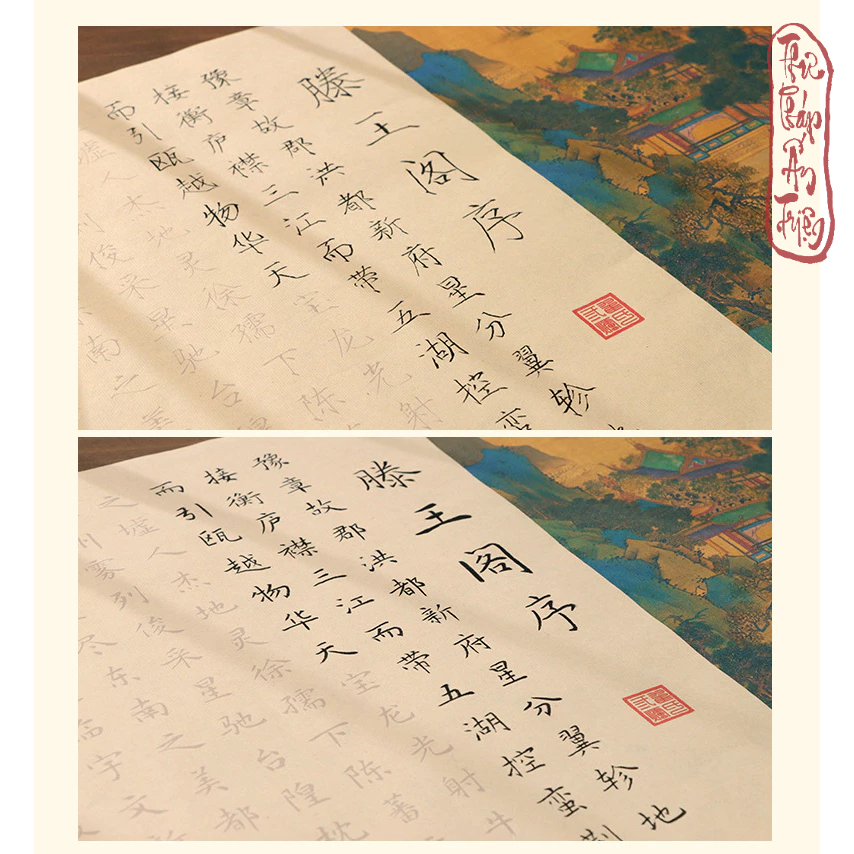 滕王阁序
豫章故郡洪都新府星分翼轸
接衡庐襟三江而带五湖控蛮
而引瓯越物华天宝龙光射
墟人杰地灵徐孺下陈
列俊采星驰台
南之美
滕王阁序
豫章故郡洪都新府星分翼轸地
接衡庐襟三江而带五湖控蛮荆
而引瓯越物华天宝龙光射牛
之墟人杰地灵徐孺下陈蕃
州雾列俊采星驰台隍枕
尽东南之美都
宇文新